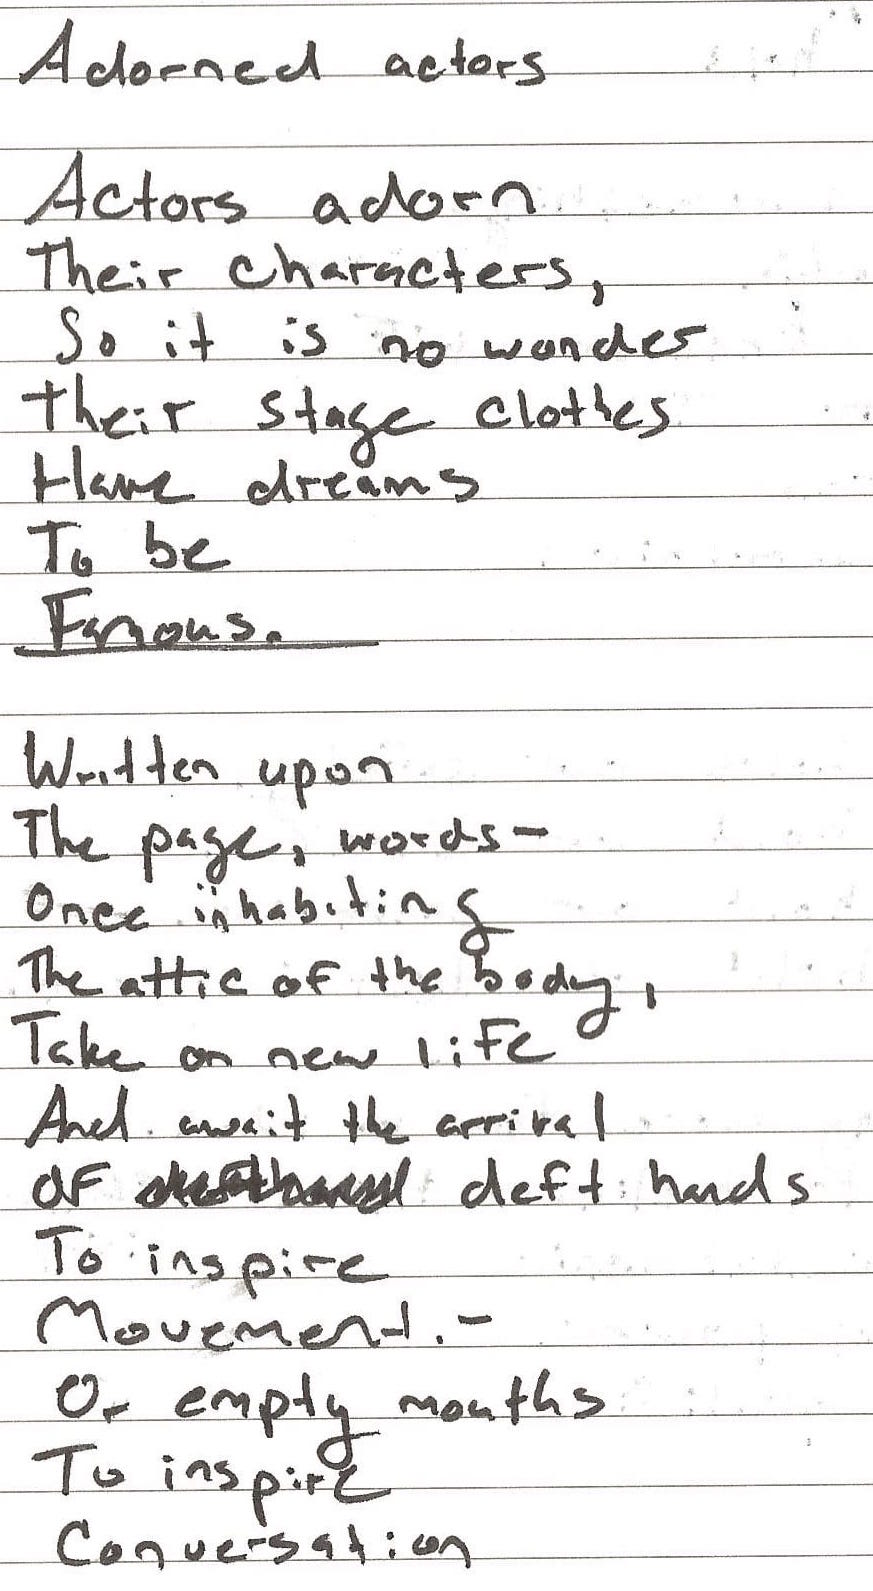 Adorned actors
Actors adorn
Their characters,
So it is no wonder
Their stage clothes
Have dreams
To be
Famous.
Written upon
The page, words-
Once inhabiting
The attic of the body,
Take on new life
And await the arrival
Of deft hands
To inspire
Movement.-
Or empty mouths
To inspire
Conversation